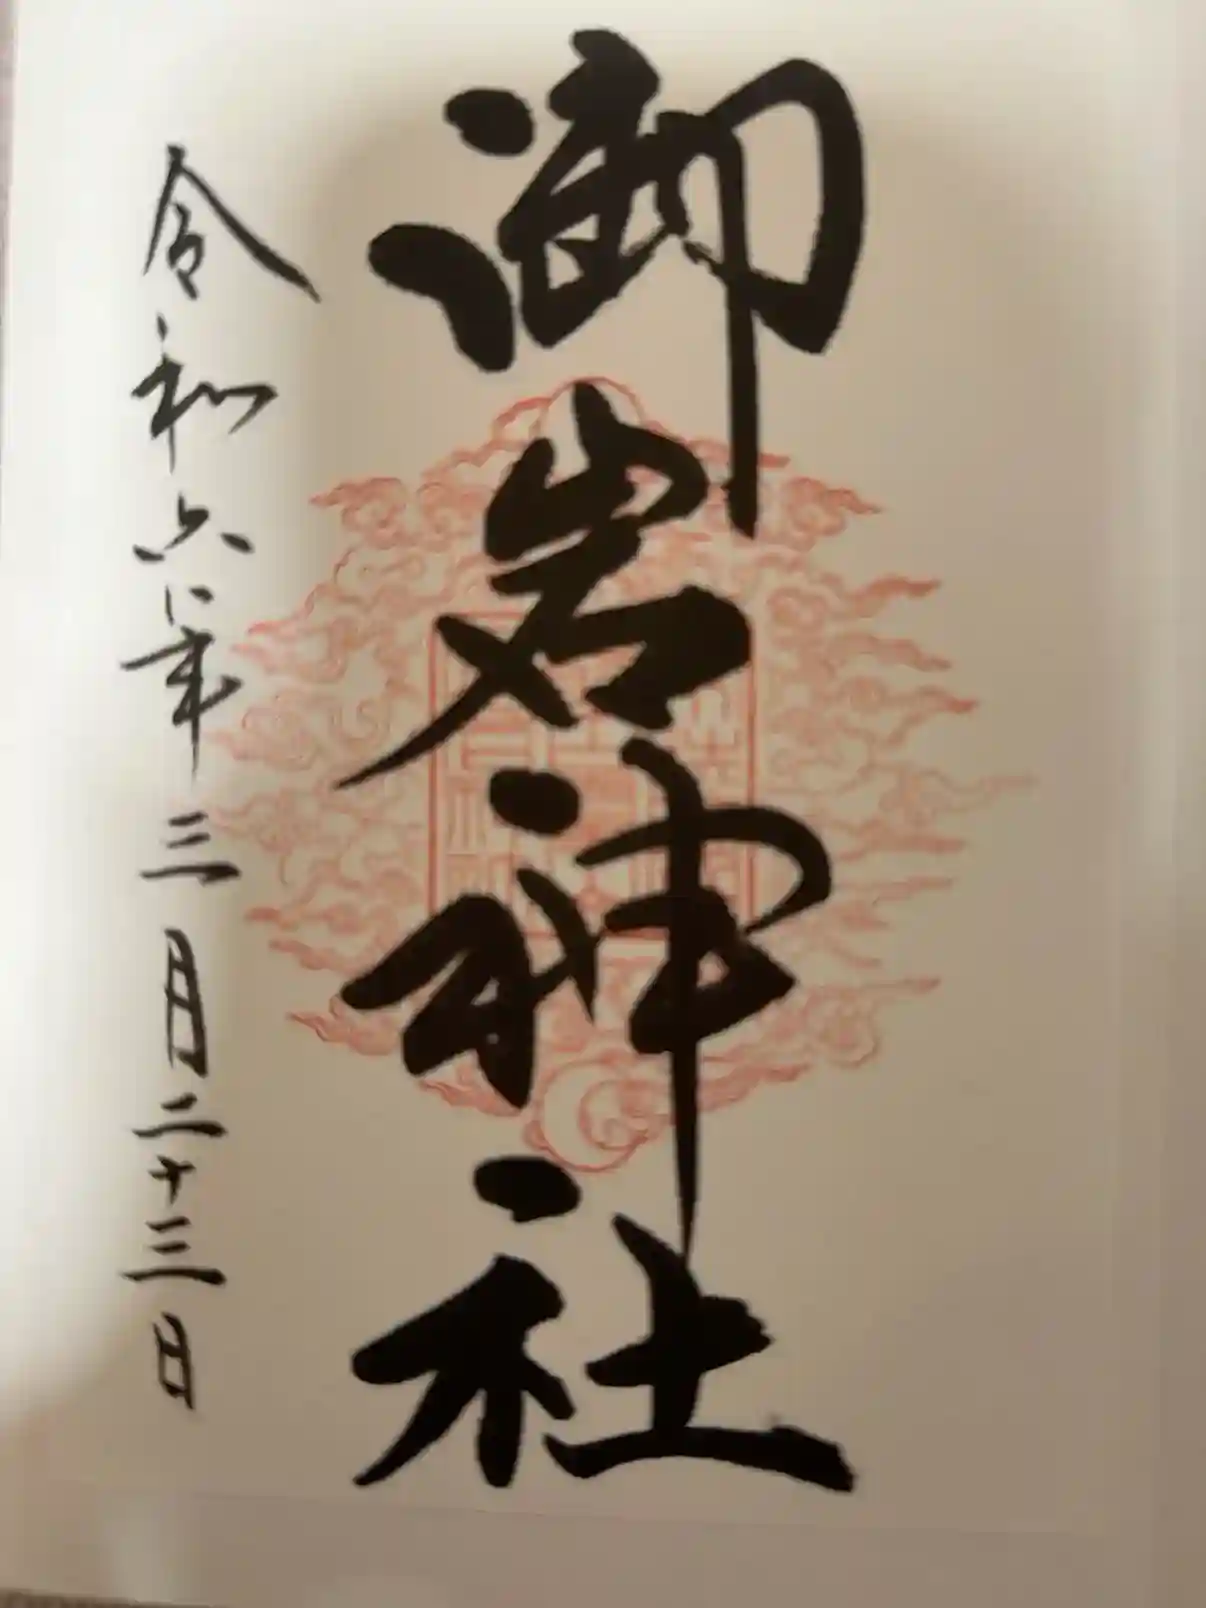 御岩神社
令和六年三月二十三日